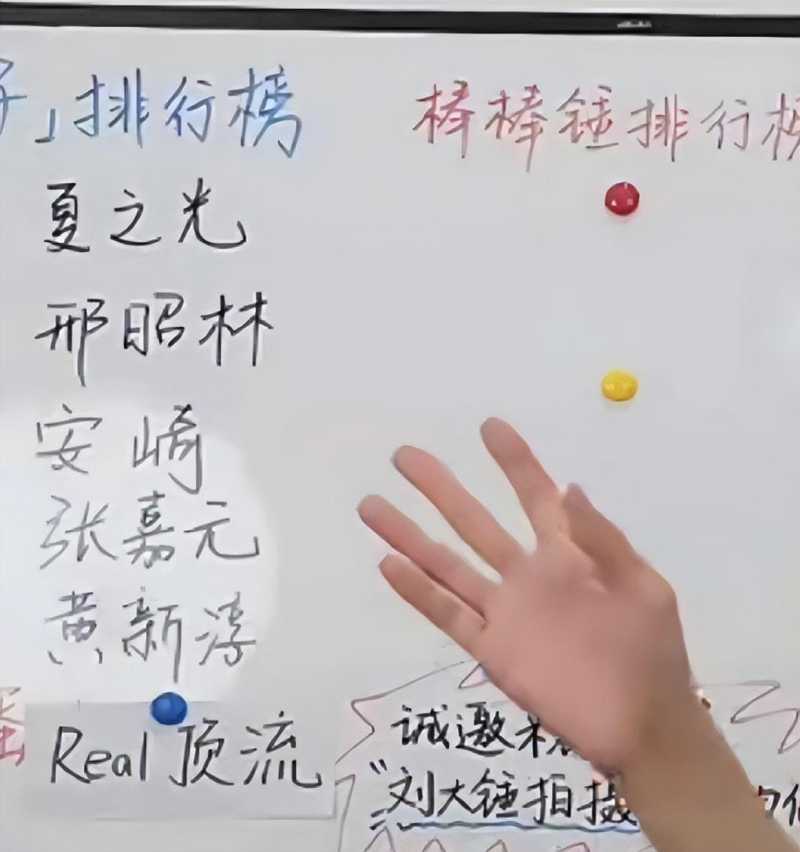 」排行榜
棒棒锤排行榜
夏之光
邢昭林
安崎
张嘉元
黄新淳
Real顶流
诚邀
"刘大锤拍摄